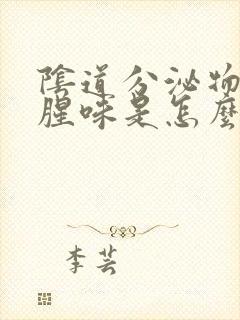 陰道分泌物
腥味是怎麼
李芸